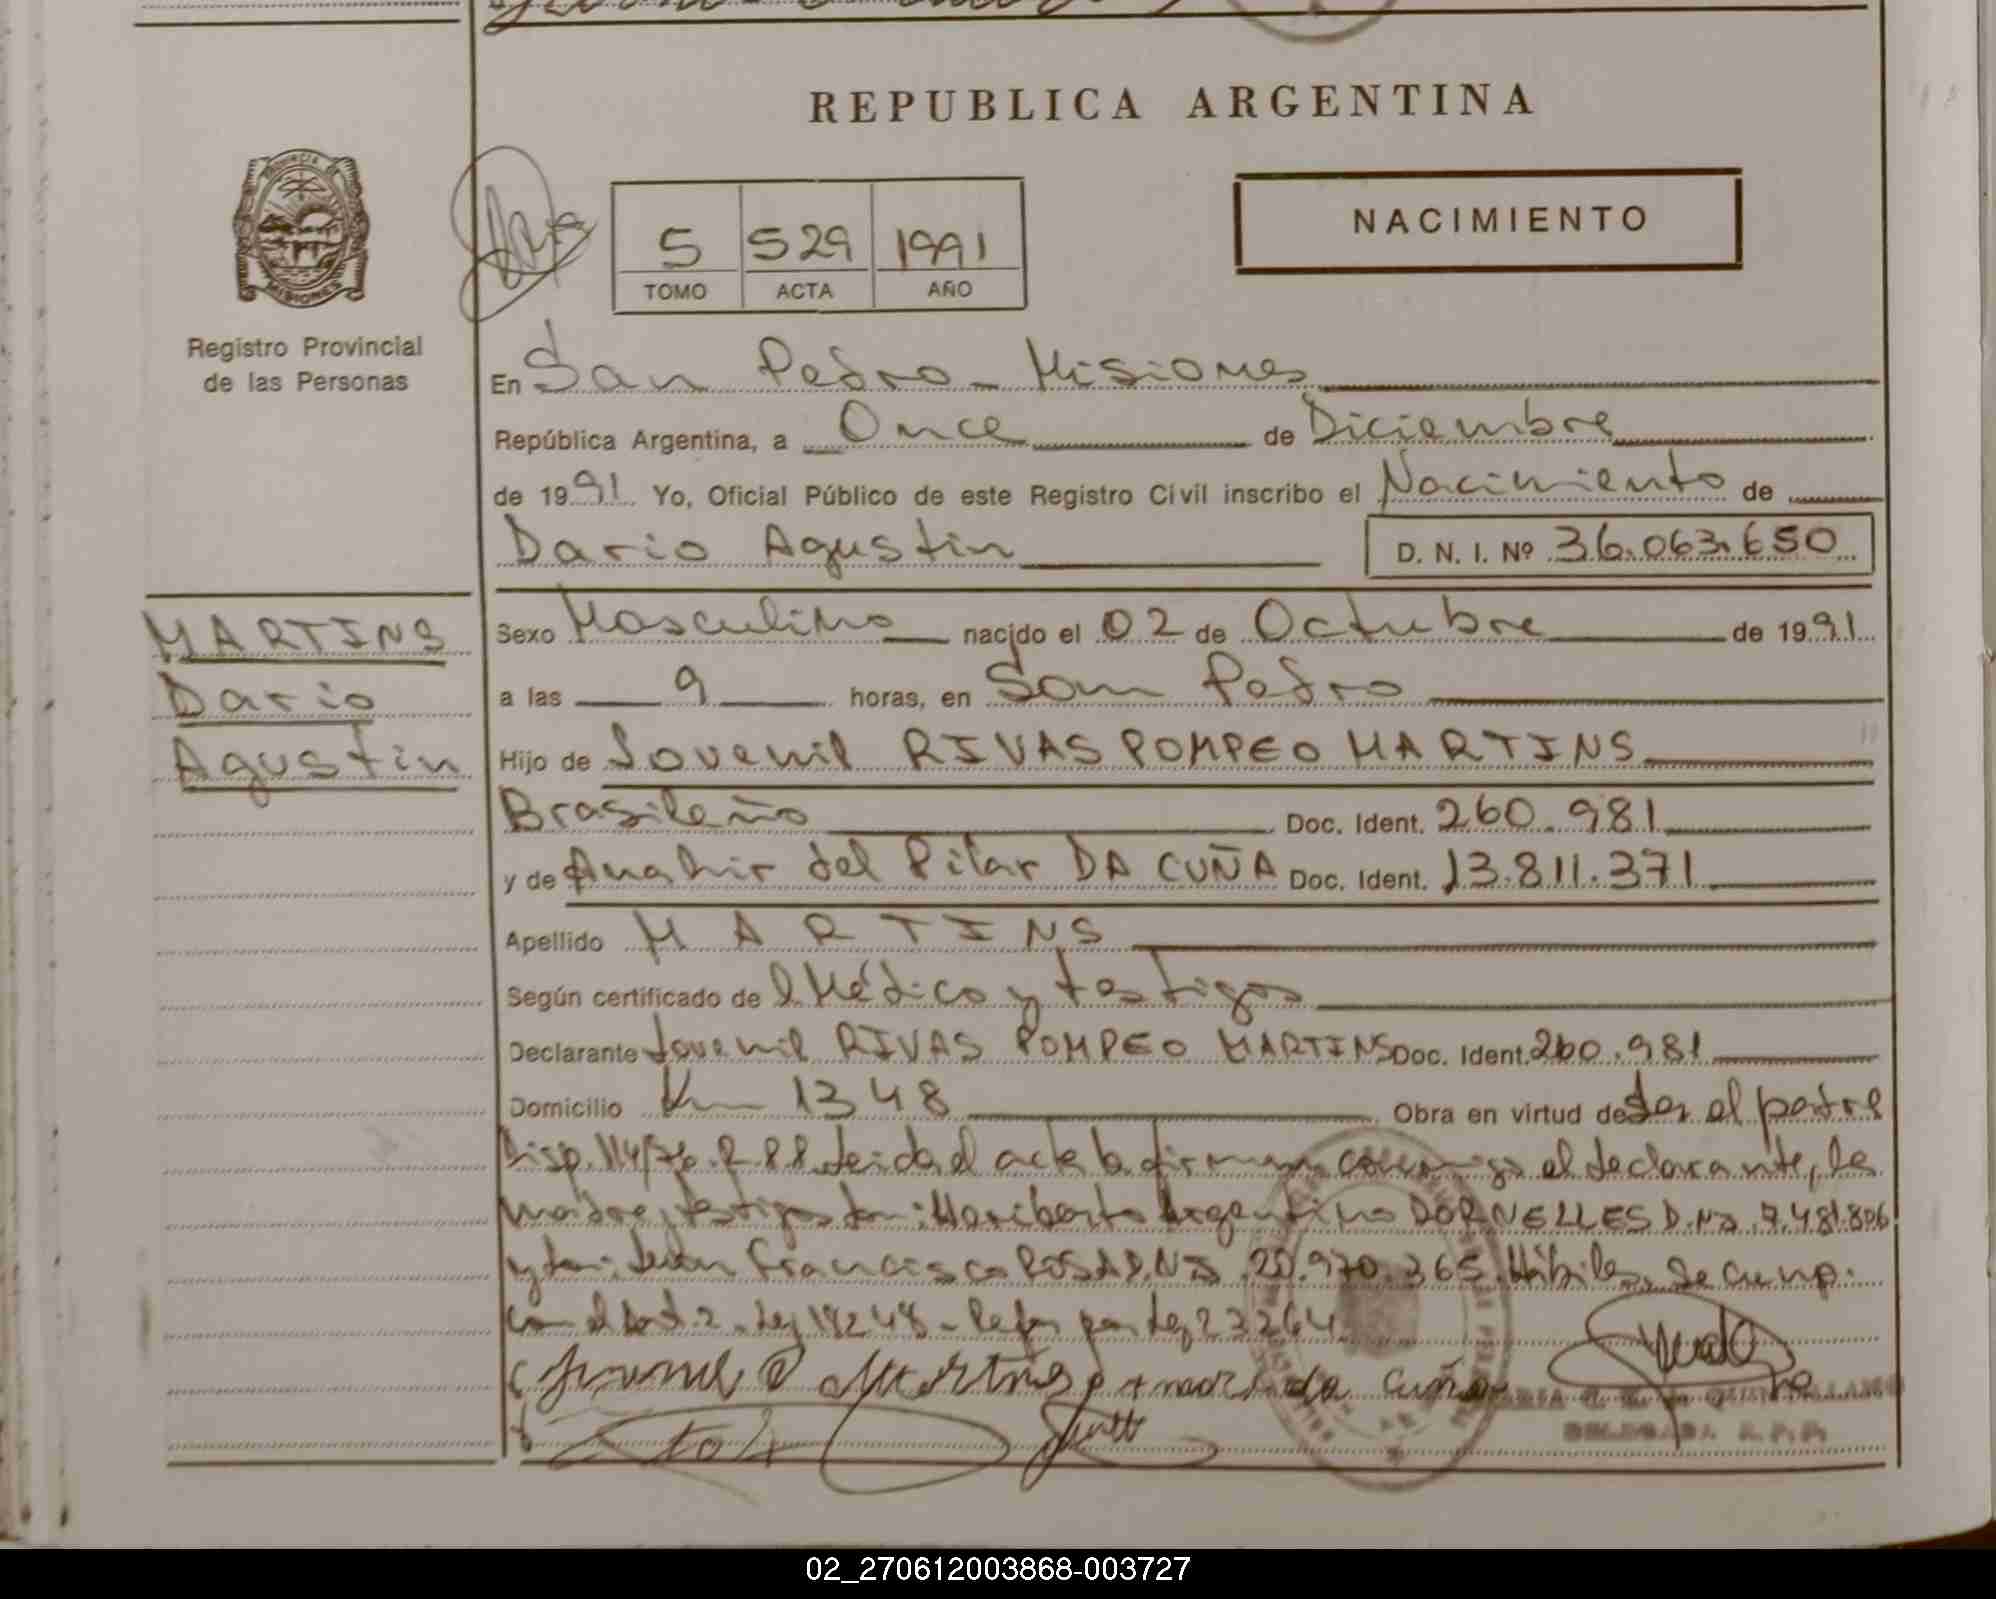 REPUBLICA ARGENTINA
PROVINCIA
MISIONES
Registro Provincial
de las Personas
5 529 1991
TOMO ACTA AÑO
NACIMIENTO
En San Pedro - Misiones
República Argentina, a Once de Diciembre
de 1991 Yo, Oficial Público de este Registro Civil inscribo el Nacimiento de
Dario Agustin D. N. I. Nº 36.063.650
MARTINS
Dario
Agustin
Sexo Masculino nacido el 02 de Octubre de 1991
a las 9 horas, en San Pedro
Hijo de Jovenil RIVAS POMPEO MARTINS
Brasileño Doc. Ident. 260.981
y de Anahir del Pilar DA CUÑA Doc. Ident. 13.811.371
Apellido MARTINS
Según certificado de l Médico y testigos
Declarante Jovenil RIVAS POMPEO MARTINS Doc. Ident. 260.981
Domicilio Km 1348 Obra en virtud de ser el padre
Disp. 114/76 Leida el acta la firman conmigo el declarante, la
madre, testigos Don: Heriberto Argentino DORNELLES D.N.I. 7.481.806
y Don: Francisco ROSA D.N.I. 20.970.365 Hábiles, se cump.
con el Art. 2 - Ley 18248 - Refor por Ley 23264
Martins da Cuña
DELEGADA R.P.P.
02_270612003868-003727